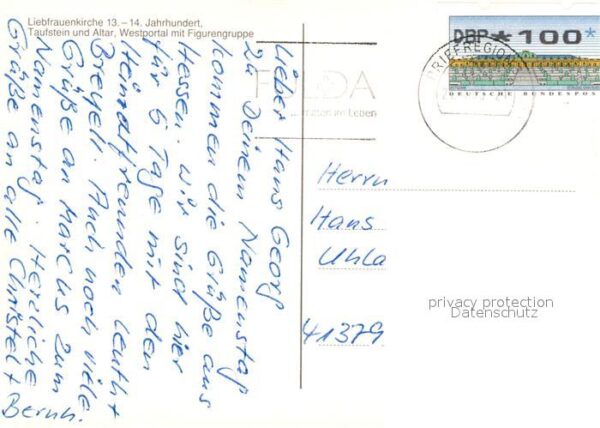 Liebfrauenkirche 13.–14. Jahrhundert,
Taufstein und Altar, Westportal mit Figurengruppe
Lieber Hans Georg
Zu Deinem Namenstag
kommen die Grüße aus
Hessen. Wir sind hier
für 6 Tage mit den
Heimatfreunden Leuth +
Breyell. Auch noch viele
Grüße an Marcus zum
Namenstag. Herzliche
Grüße an alle Christel +
Bernh.
DBP *100*
DEUTSCHE BUNDESPOST
BRIEFREGION
FULDA
mitten im Leben
Herrn
Hans
Uhla
41379
privacy protection
Datenschutz